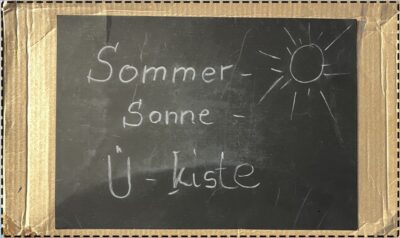 Sommer-
Sonne -
Ü-kiste